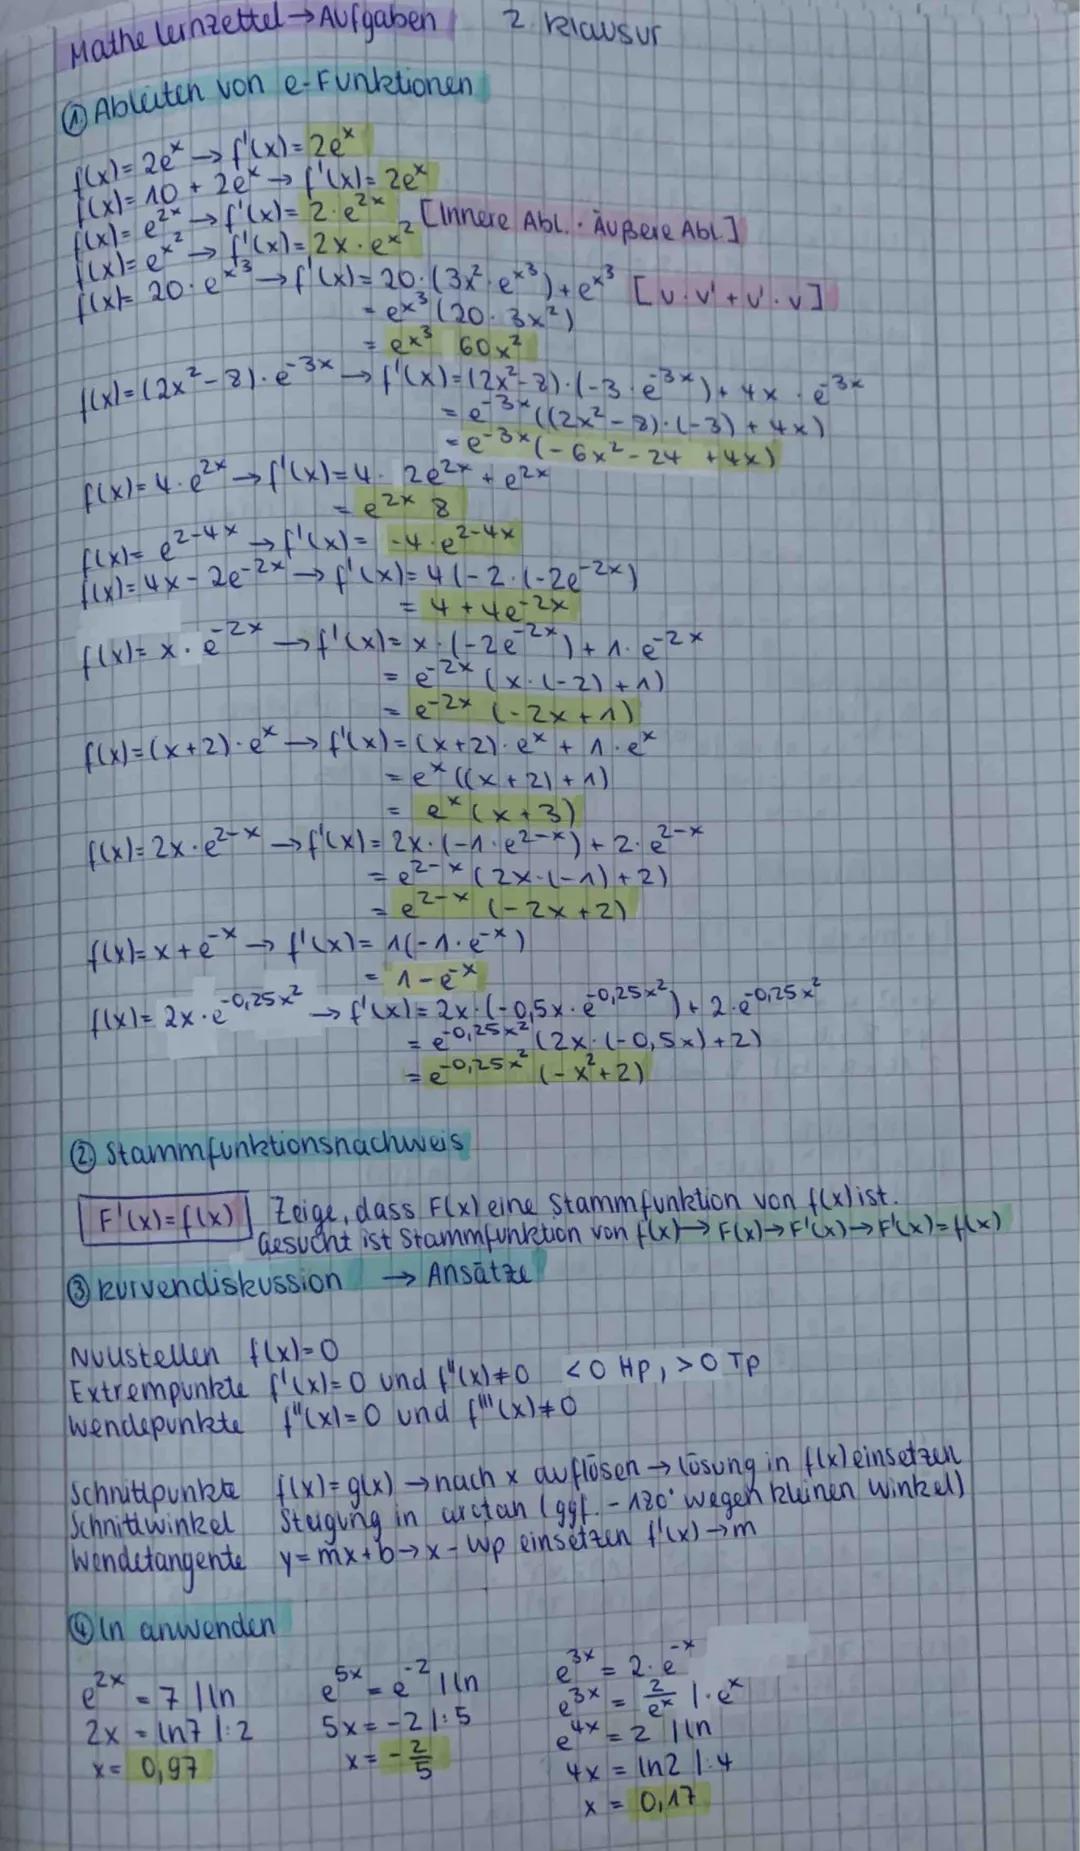 Mathe lernzettel → Aufgaben 2. Klausur
① Ableiten von e-Funktionen
f(x)= 2eˣ → f'(x)= 2eˣ
f(x)= 10 + 2eˣ → f'(x)= 2eˣ
f(x)= e²ˣ → f'(x)= 2·e²ˣ [Innere Abl. · Äußere Abl.]
f(x)= e^x² → f'(x)= 2x·e^x²
f(x)= 20·e^x³ → f'(x)= 20·(3x²·e^x³)+e^x³ [u·v'+u'·v]
= e^x³ (20·3x²)
= e^x³ 60x²
f(x)=(2x²-8)·e^-3x → f'(x)=(2x²-8)·(-3·e^-3x)+4x·e^-3x
= e^-3x((2x²-8)·(-3)+4x)
= e^-3x(-6x²-24 +4x)
f(x)= 4·e^2x → f'(x)= 4· 2e^2x + e^2x
= e^2x 8
f(x)= e^2-4x → f'(x)= -4·e^2-4x
f(x)= 4x-2e^-2x → f'(x)= 4(-2·(-2e^-2x)
= 4+4e^-2x
f(x)= x·e^-2x → f'(x)= x·(-2e^-2x)+1·e^-2x
= e^-2x (x·(-2)+1)
= e^-2x (-2x+1)
f(x)=(x+2)·eˣ → f'(x)=(x+2)·eˣ + 1·eˣ
= eˣ((x+2)+1)
= eˣ(x+3)
f(x)= 2x·e^2-x → f'(x)= 2x·(-1·e^2-x)+2·e^2-x
= e^2-x (2x·(-1)+2)
= e^2-x (-2x+2)
f(x)= x+e^-x → f'(x)= 1(-1·e^-x)
= 1-e^-x
f(x)= 2x·e^-0,25x² → f'(x)= 2x·(-0,5x·e^-0,25x²)+2·e^-0,25x²
= e^-0,25x² (2x·(-0,5x)+2)
= e^-0,25x² (-x²+2)
② Stammfunktionsnachweis
F'(x)=f(x) Zeige, dass F(x) eine Stammfunktion von f(x) ist.
Gesucht ist Stammfunktion von f(x) → F(x) → F'(x) → F'(x)=f(x)
③ Kurvendiskussion → Ansätze
Nullstellen f(x)=0
Extrempunkte f'(x)=0 und f''(x)≠0 <0 Hp, >0 Tp
Wendepunkte f''(x)=0 und f'''(x)≠0
Schnittpunkte f(x)=g(x) → nach x auflösen → lösung in f(x) einsetzen
Schnittwinkel Steigung in arctan (ggf. -180° wegen kleinen Winkel)
Wendetangente y=mx+b → x-Wp einsetzen f'(x) → m
④ ln anwenden
e^2x = 7 |ln
2x = ln7 |:2
x = 0,97
e^5x = e^-2 |ln
5x = -2 |:5
x = -2/5
e^3x = 2·e^-x
e^3x = 2/eˣ |·eˣ
e^4x = 2 |ln
4x = ln2 |:4
x = 0,17